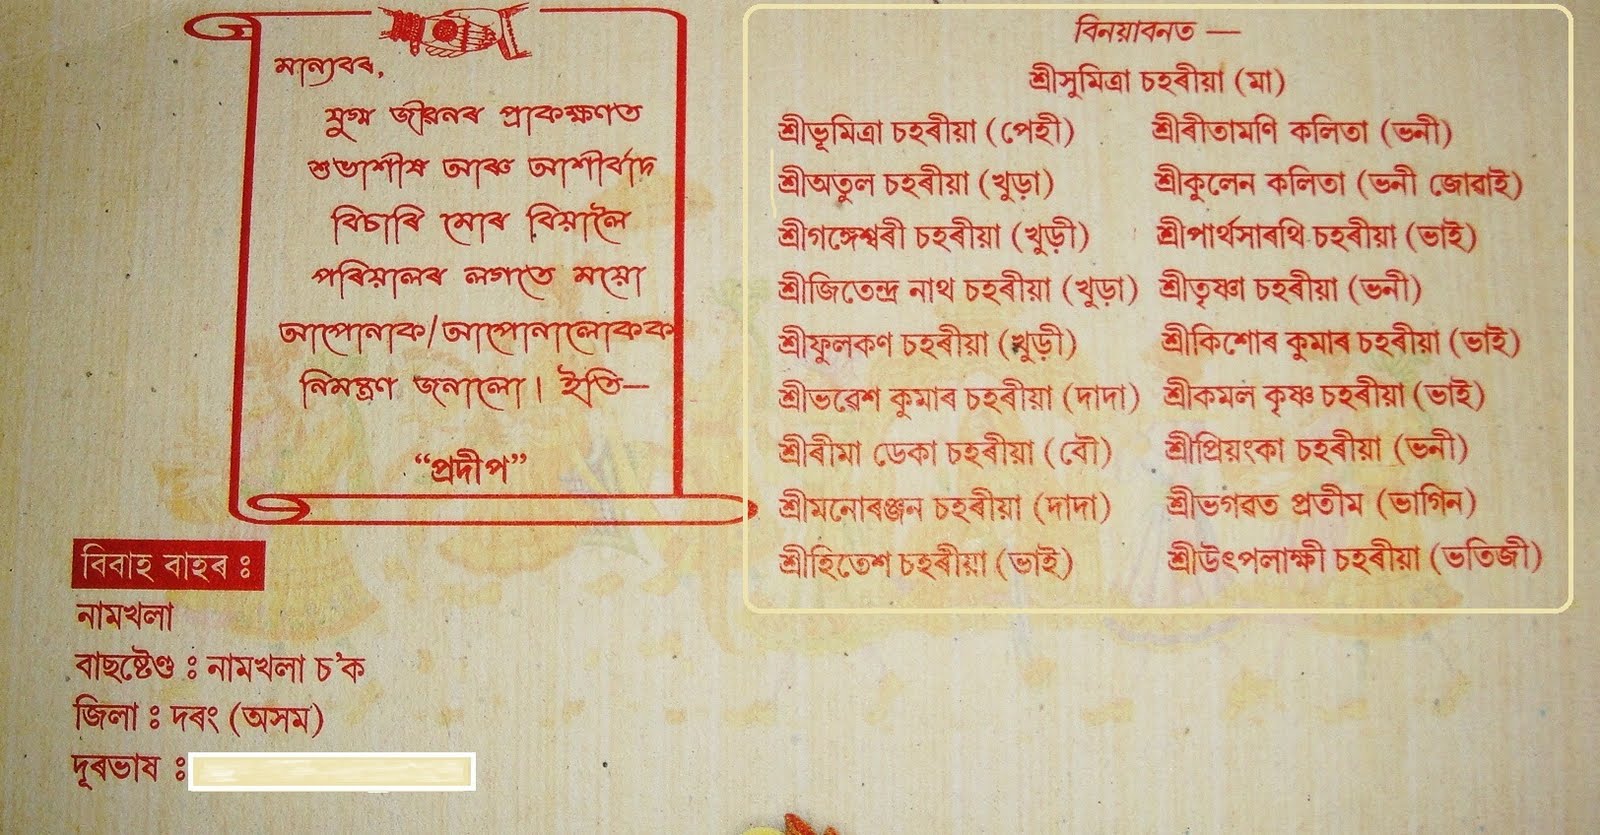 মান্যবৰ,
যুগ্ম জীৱনৰ প্ৰাকক্ষণত
শুভাশীষ আৰু আশীৰ্বাদ
বিচাৰি মোৰ বিয়ালৈ
পৰিয়ালৰ লগতে ময়ো
আপোনাক/আপোনালোকক
নিমন্ত্ৰণ জনালো। ইতি—
“প্ৰদীপ”
বিবাহ বাহৰ ঃ
নামখলা
বাছষ্টেণ্ড ঃ নামখলা চ’ক
জিলা ঃ দৰং (অসম)
দূৰভাষ ঃ
বিনয়াবনত —
শ্ৰীসুমিত্ৰা চহৰীয়া (মা)
শ্ৰীভূমিত্ৰা চহৰীয়া (পেহী)
শ্ৰীঅতুল চহৰীয়া (খুড়া)
শ্ৰীগঙ্গেশ্বৰী চহৰীয়া (খুড়ী)
শ্ৰীজিতেন্দ্ৰ নাথ চহৰীয়া (খুড়া)
শ্ৰীফুলকণ চহৰীয়া (খুড়ী)
শ্ৰীভৱেশ কুমাৰ চহৰীয়া (দাদা)
শ্ৰীৰীমা ডেকা চহৰীয়া (বৌ)
শ্ৰীমনোৰঞ্জন চহৰীয়া (দাদা)
শ্ৰীহিতেশ চহৰীয়া (ভাই)
শ্ৰীৰীতামণি কলিতা (ভনী)
শ্ৰীকুলেন কলিতা (ভনী জোৱাই)
শ্ৰীপাৰ্থসাৰথি চহৰীয়া (ভাই)
শ্ৰীতৃষ্ণা চহৰীয়া (ভনী)
শ্ৰীকিশোৰ কুমাৰ চহৰীয়া (ভাই)
শ্ৰীকমল কৃষ্ণ চহৰীয়া (ভাই)
শ্ৰীপ্ৰিয়ংকা চহৰীয়া (ভনী)
শ্ৰীভগৱত প্ৰতীম (ভাগিন)
শ্ৰীউৎপলাক্ষী চহৰীয়া (ভতিজী)